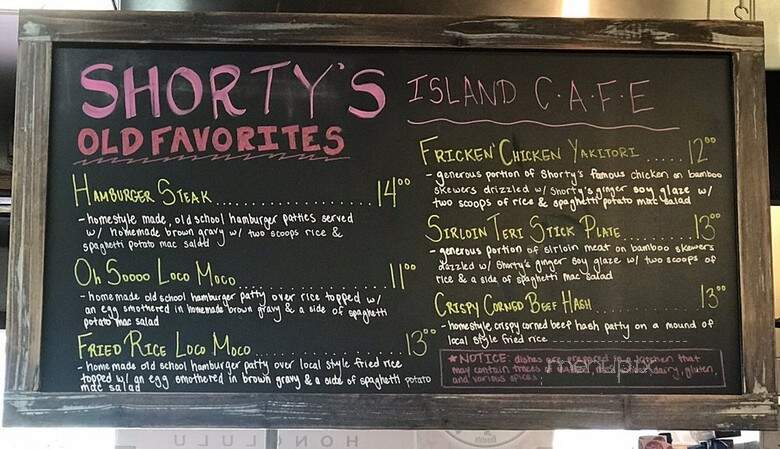 SHORTY'S
OLD FAVORITES
HAMBURGER STEAK.......................14⁰⁰
- homestyle made, old school hamburger patties served
w/ homemade brown gravy w/ two scoops rice &
spaghetti potato mac salad
Oh Soooo Loco Moco.......................11⁰⁰
- homemade old school hamburger patty over rice topped w/
an egg smothered in homemade brown gravy & a side of spaghetti
potato mac salad
FRIED RICE LOCO MOCO.......................13⁰⁰
- homemade old school hamburger patty over local style fried rice
topped w/ an egg smothered in brown gravy & a side of spaghetti potato
mac salad
ISLAND C·A·F·E
FRICKEN' CHICKEN YAKITORI.....12⁰⁰
- generous portion of Shorty's famous chicken on bamboo
skewers drizzled w/ Shorty's ginger soy glaze w/
two scoops of rice & spaghetti potato mac salad
SIRLOIN TERI STICK PLATE...........13⁰⁰
- generous portion of sirloin meat on bamboo skewers
drizzled w/ Shorty's ginger soy glaze w/ two scoops of
rice & a side of spaghetti mac salad
CRISPY CORNED BEEF HASH...............13⁰⁰
- homestyle crispy corned beef hash patty on a mound of
local style fried rice
*NOTICE: dishes are prepared in a kitchen that
may contain traces of dairy, gluten,
and various spices.
HONOLULU